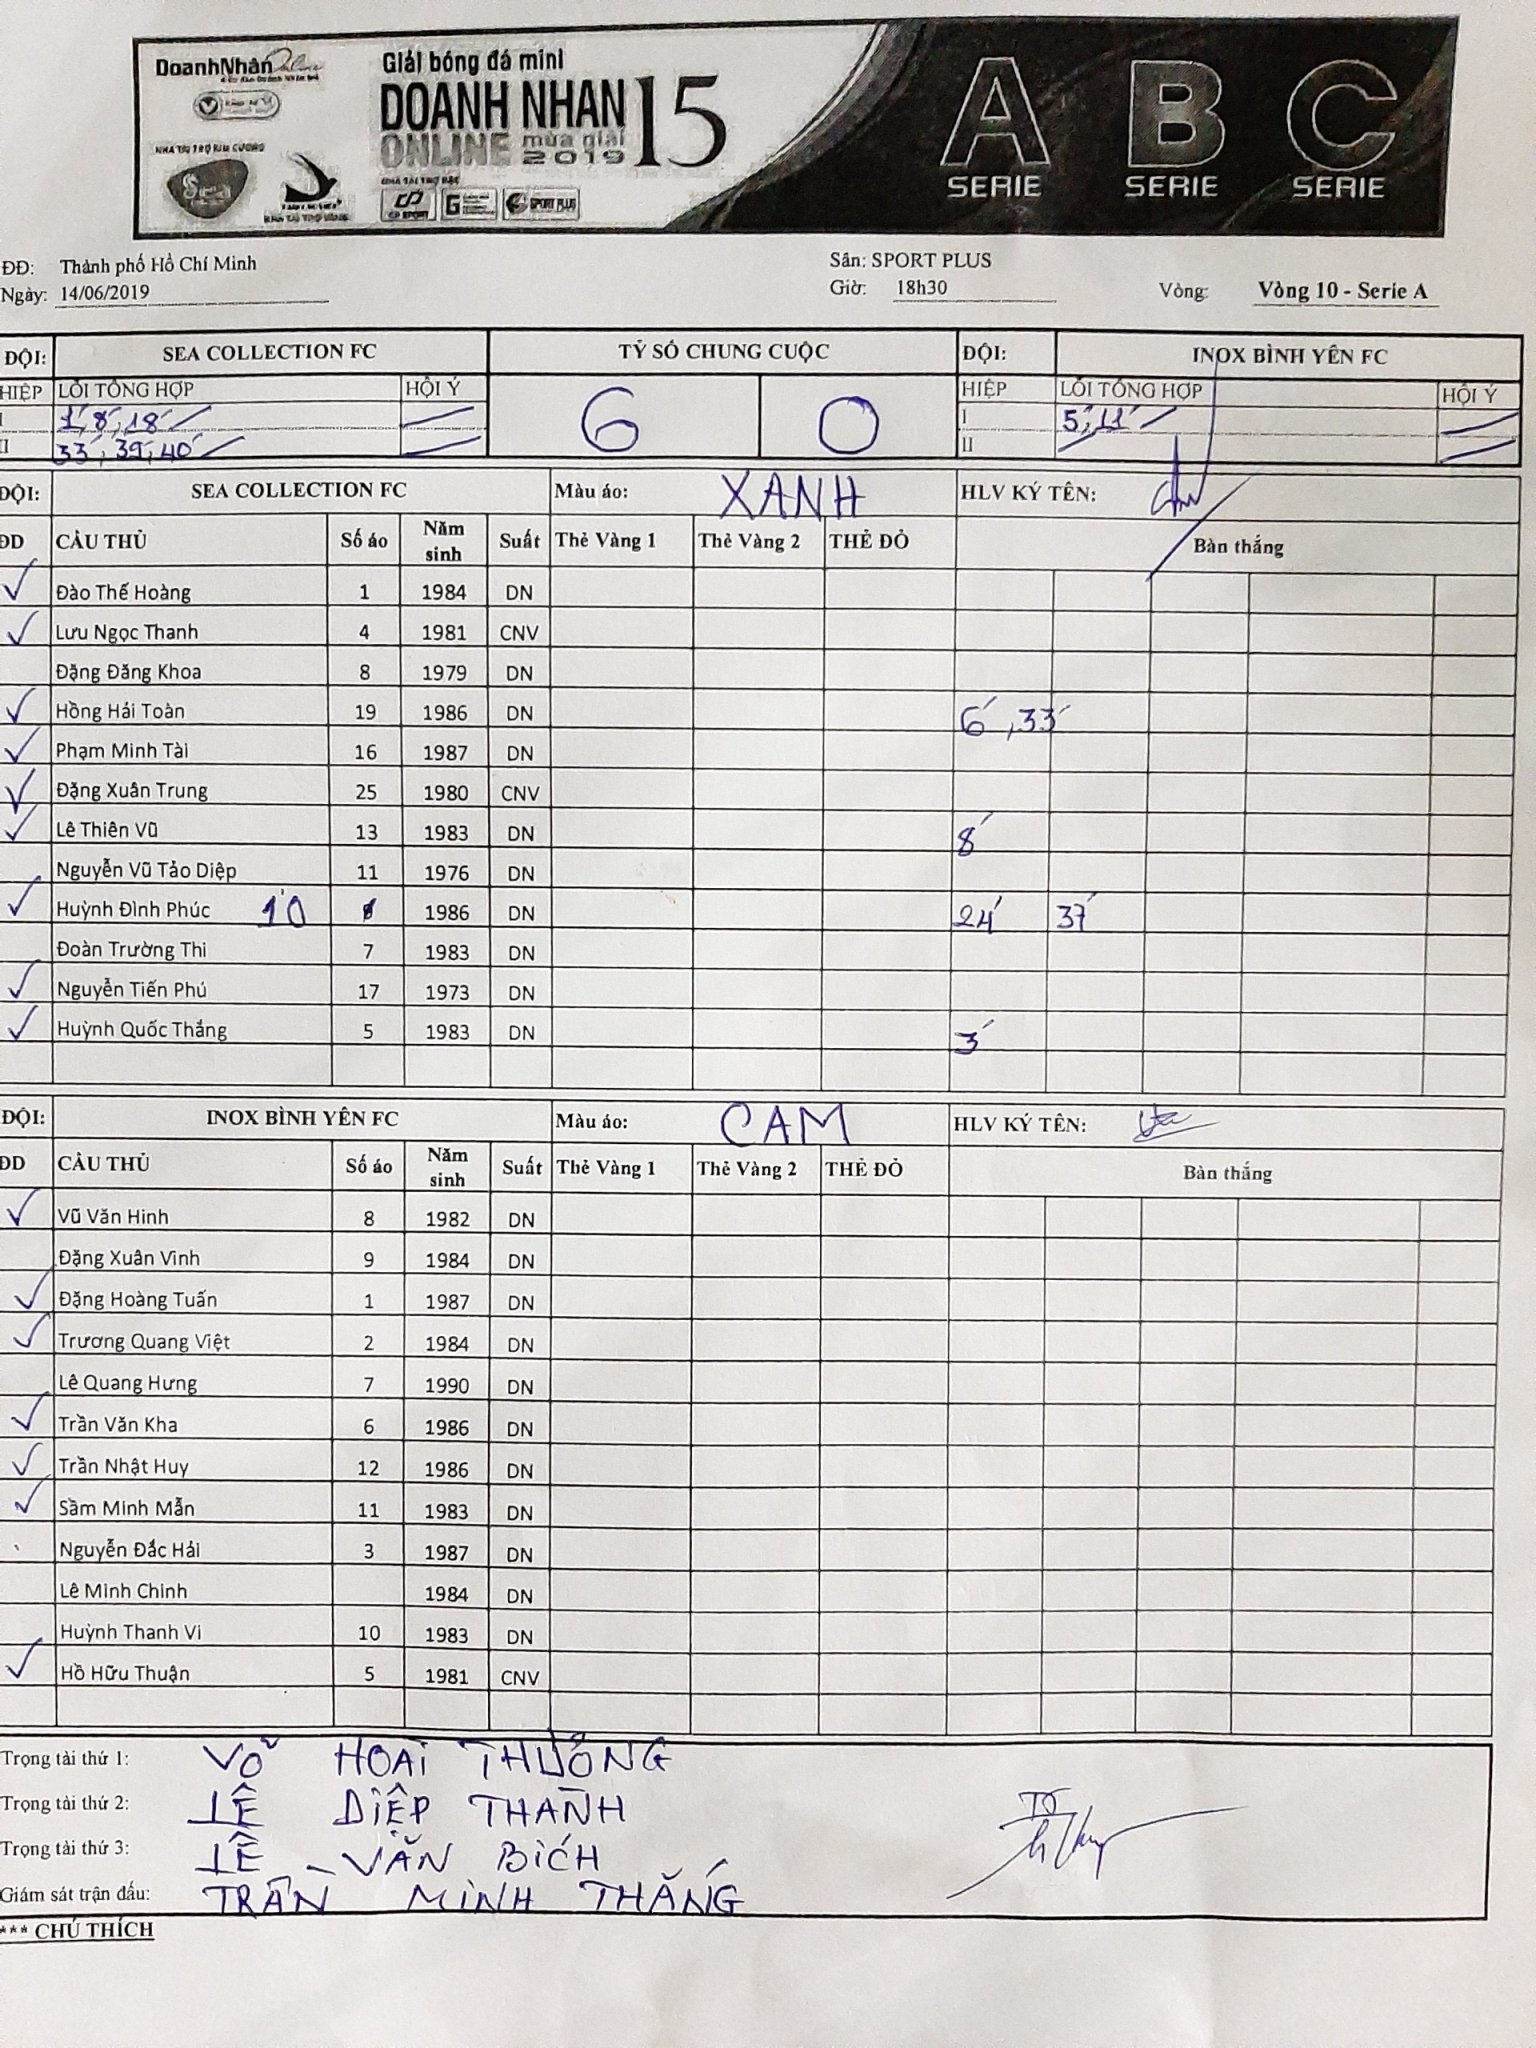 DoanhNhân Online
NHÀ TÀI TRỢ KIM CƯƠNG
Giải bóng đá mini
DOANH NHAN 15
ONLINE mùa giải
2019
NHÀ TÀI TRỢ BẠC
CP SPORT G SPORT PLUS
A B C
SERIE SERIE SERIE
ĐĐ: Thành phố Hồ Chí Minh Sân: SPORT PLUS
Ngày: 14/06/2019 Giờ: 18h30 Vòng: Vòng 10 - Serie A
ĐỘI: SEA COLLECTION FC TỶ SỐ CHUNG CUỘC ĐỘI: INOX BÌNH YÊN FC
HIỆP LỖI TỔNG HỢP HỘI Ý 6 0 HIỆP LỖI TỔNG HỢP HỘI Ý
I 1', 8', 18' I 5', 11'
II 33', 39', 40' II
ĐỘI: SEA COLLECTION FC Màu áo: XANH HLV KÝ TÊN:
ĐD CẦU THỦ Số áo Năm sinh Suất Thẻ Vàng 1 Thẻ Vàng 2 THẺ ĐỎ Bàn thắng
✓ Đào Thế Hoàng 1 1984 DN
✓ Lưu Ngọc Thanh 4 1981 CNV
Đặng Đăng Khoa 8 1979 DN
✓ Hồng Hải Toàn 19 1986 DN 6', 33'
✓ Phạm Minh Tài 16 1987 DN
✓ Đặng Xuân Trung 25 1980 CNV
✓ Lê Thiên Vũ 13 1983 DN 8'
Nguyễn Vũ Tảo Diệp 11 1976 DN
✓ Huỳnh Đình Phúc 10 1986 DN 24' 37'
Đoàn Trường Thi 7 1983 DN
✓ Nguyễn Tiến Phú 17 1973 DN
✓ Huỳnh Quốc Thắng 5 1983 DN 3'
ĐỘI: INOX BÌNH YÊN FC Màu áo: CAM HLV KÝ TÊN:
ĐD CẦU THỦ Số áo Năm sinh Suất Thẻ Vàng 1 Thẻ Vàng 2 THẺ ĐỎ Bàn thắng
✓ Vũ Văn Hinh 8 1982 DN
Đặng Xuân Vinh 9 1984 DN
✓ Đặng Hoàng Tuấn 1 1987 DN
✓ Trương Quang Việt 2 1984 DN
Lê Quang Hưng 7 1990 DN
✓ Trần Văn Kha 6 1986 DN
✓ Trần Nhật Huy 12 1986 DN
✓ Sầm Minh Mẫn 11 1983 DN
Nguyễn Đắc Hải 3 1987 DN
Lê Minh Chinh 1984 DN
Huỳnh Thanh Vi 10 1983 DN
✓ Hồ Hữu Thuận 5 1981 CNV
Trọng tài thứ 1: VÕ HOÀI THƯƠNG
Trọng tài thứ 2: LÊ DIỆP THÀNH
Trọng tài thứ 3: LÊ VĂN BÍCH
Giám sát trận đấu: TRẦN MINH THẮNG
*** CHÚ THÍCH